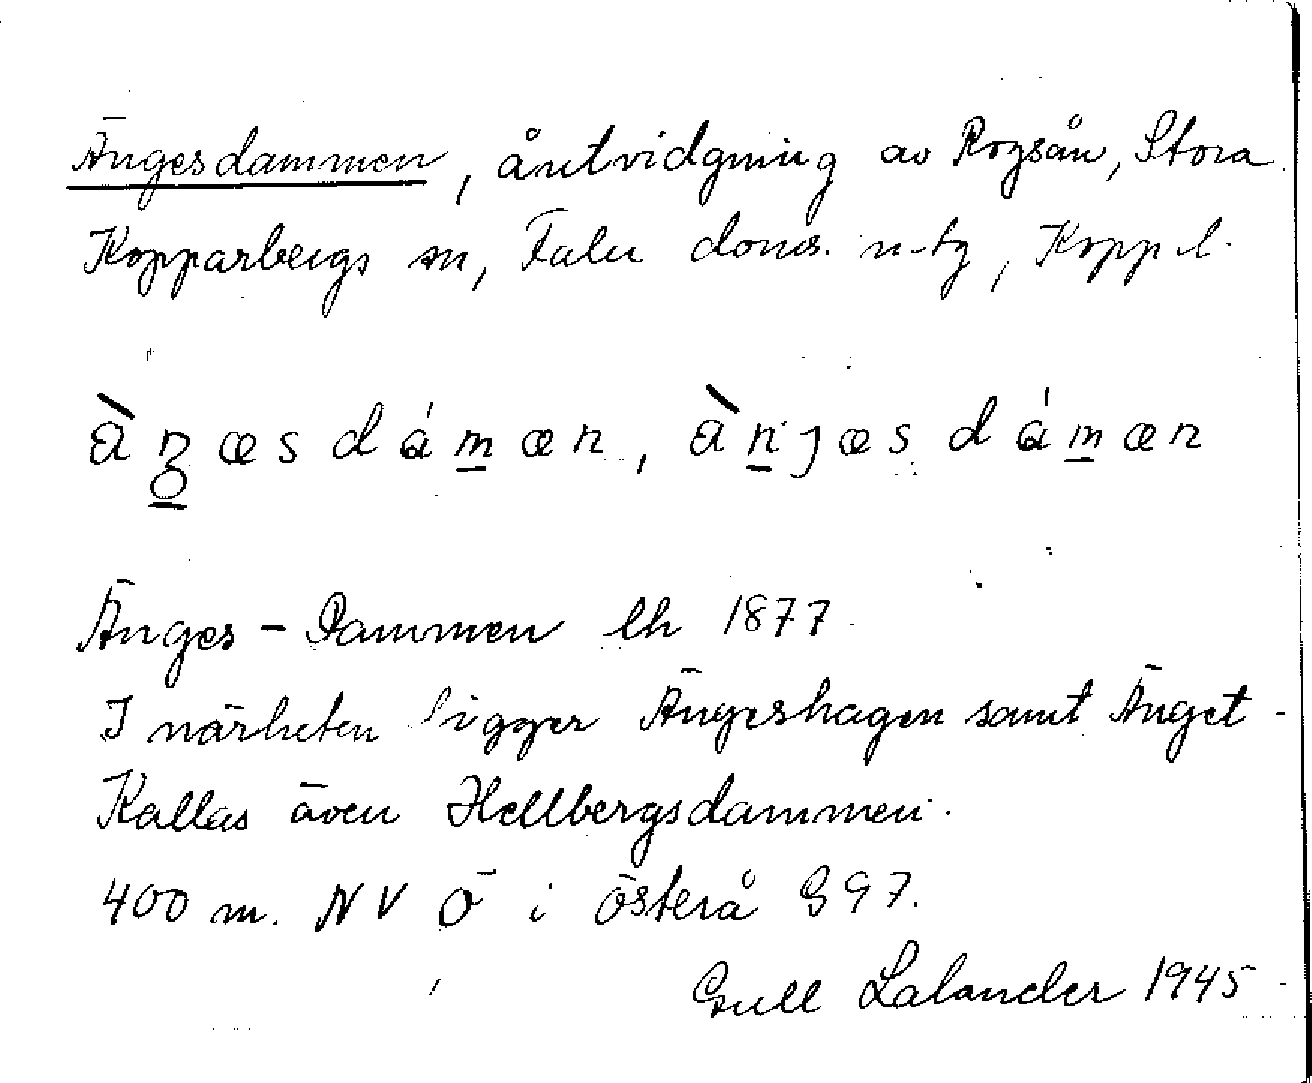 Ängesdammen, åutvidgning av Rogsån, Stora
Kopparbergs sn, Falu doms. n-tg, Kopp l.
ɑ̀ n̠æs dɑ́m̠æn, ɑ̀n̠jæs dɑ́m̠æn
Änges-Dammen lh 1877
I närheten ligger Ängeshagen samt Änget.
Kallas även Hellbergsdammen.
400 m. NV Ö i Österå G97.
Gull Lalander 1945.